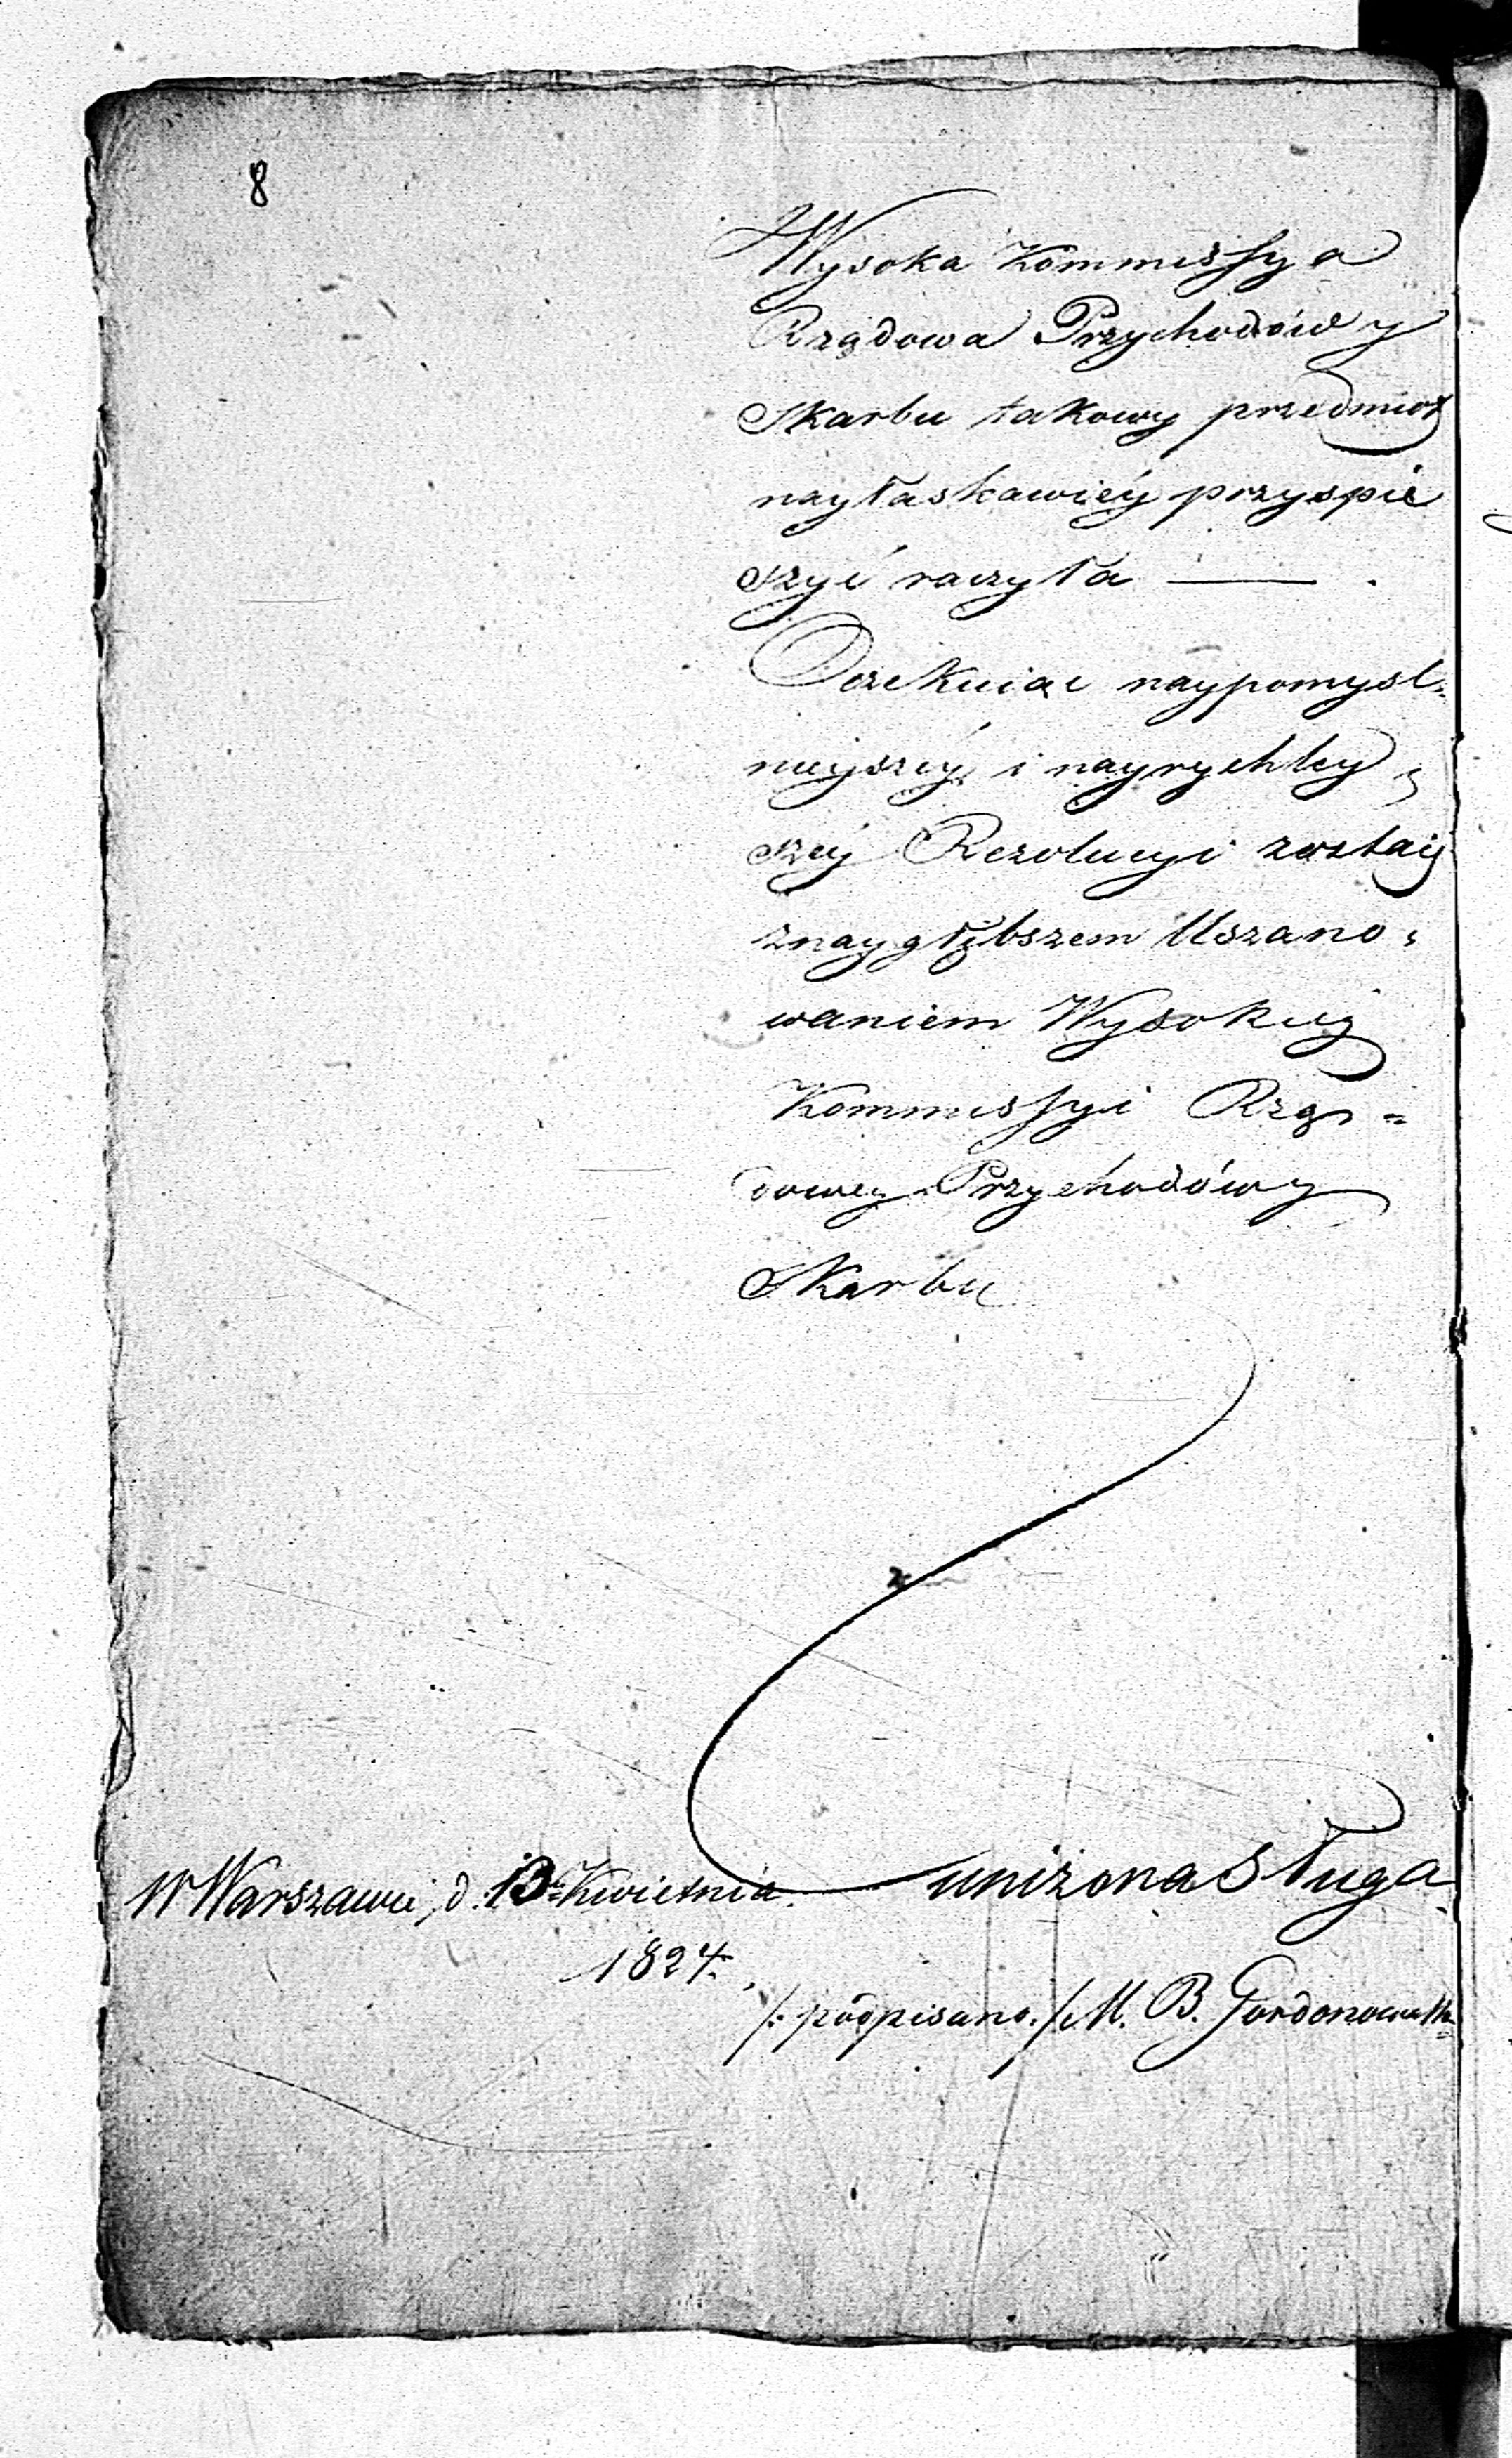 8
Wysoka Kommissya
Rządowa Przychodów y
Skarbu takowy przedmiot
nayłaskawiéy przyspie
szyć raczyła —
Oczekuiąc naypomysl=
nieyszéy i nayrychley=
széy Rezolucyi zostaię
z naygłębszem Uszano=
waniem Wysokiey
Kommissyi Rzą=
dowey Przychodów y
Skarbu
uniżona Sługa
W Warszawie, d. Kwietnia
1824.
/: podpisano :/ M. B. Gordonowa